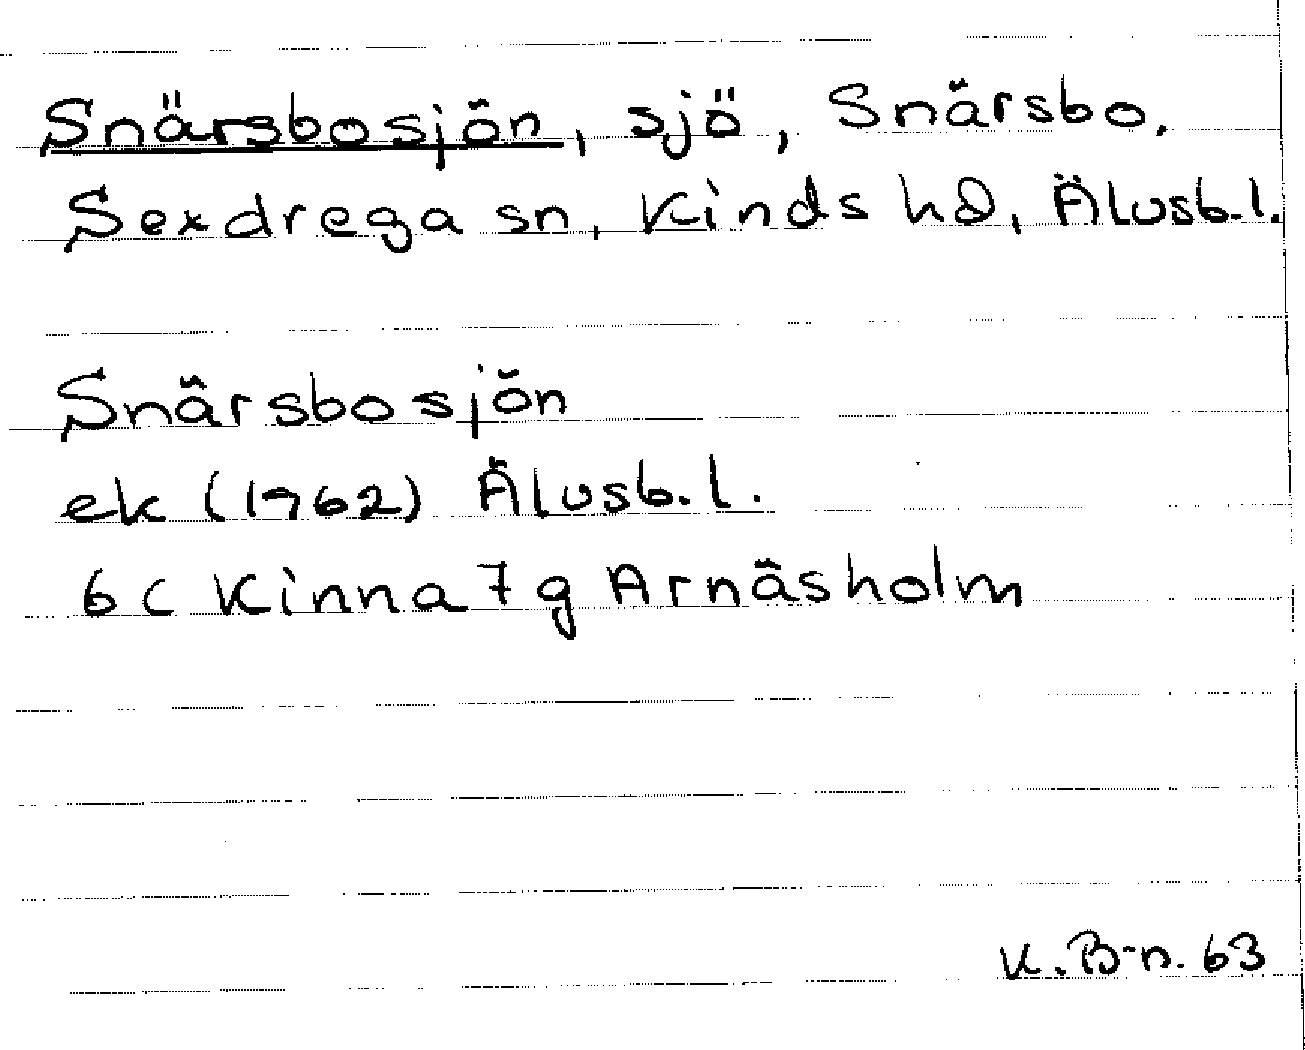 Snärsbosjön, sjö, Snärsbo,
Sexdrega sn, Kinds hd, Älvsb.l.
Snärsbosjön
ek (1962) Älvsb.l.
6c Kinna 7g Arnäsholm
K.B-n. 63